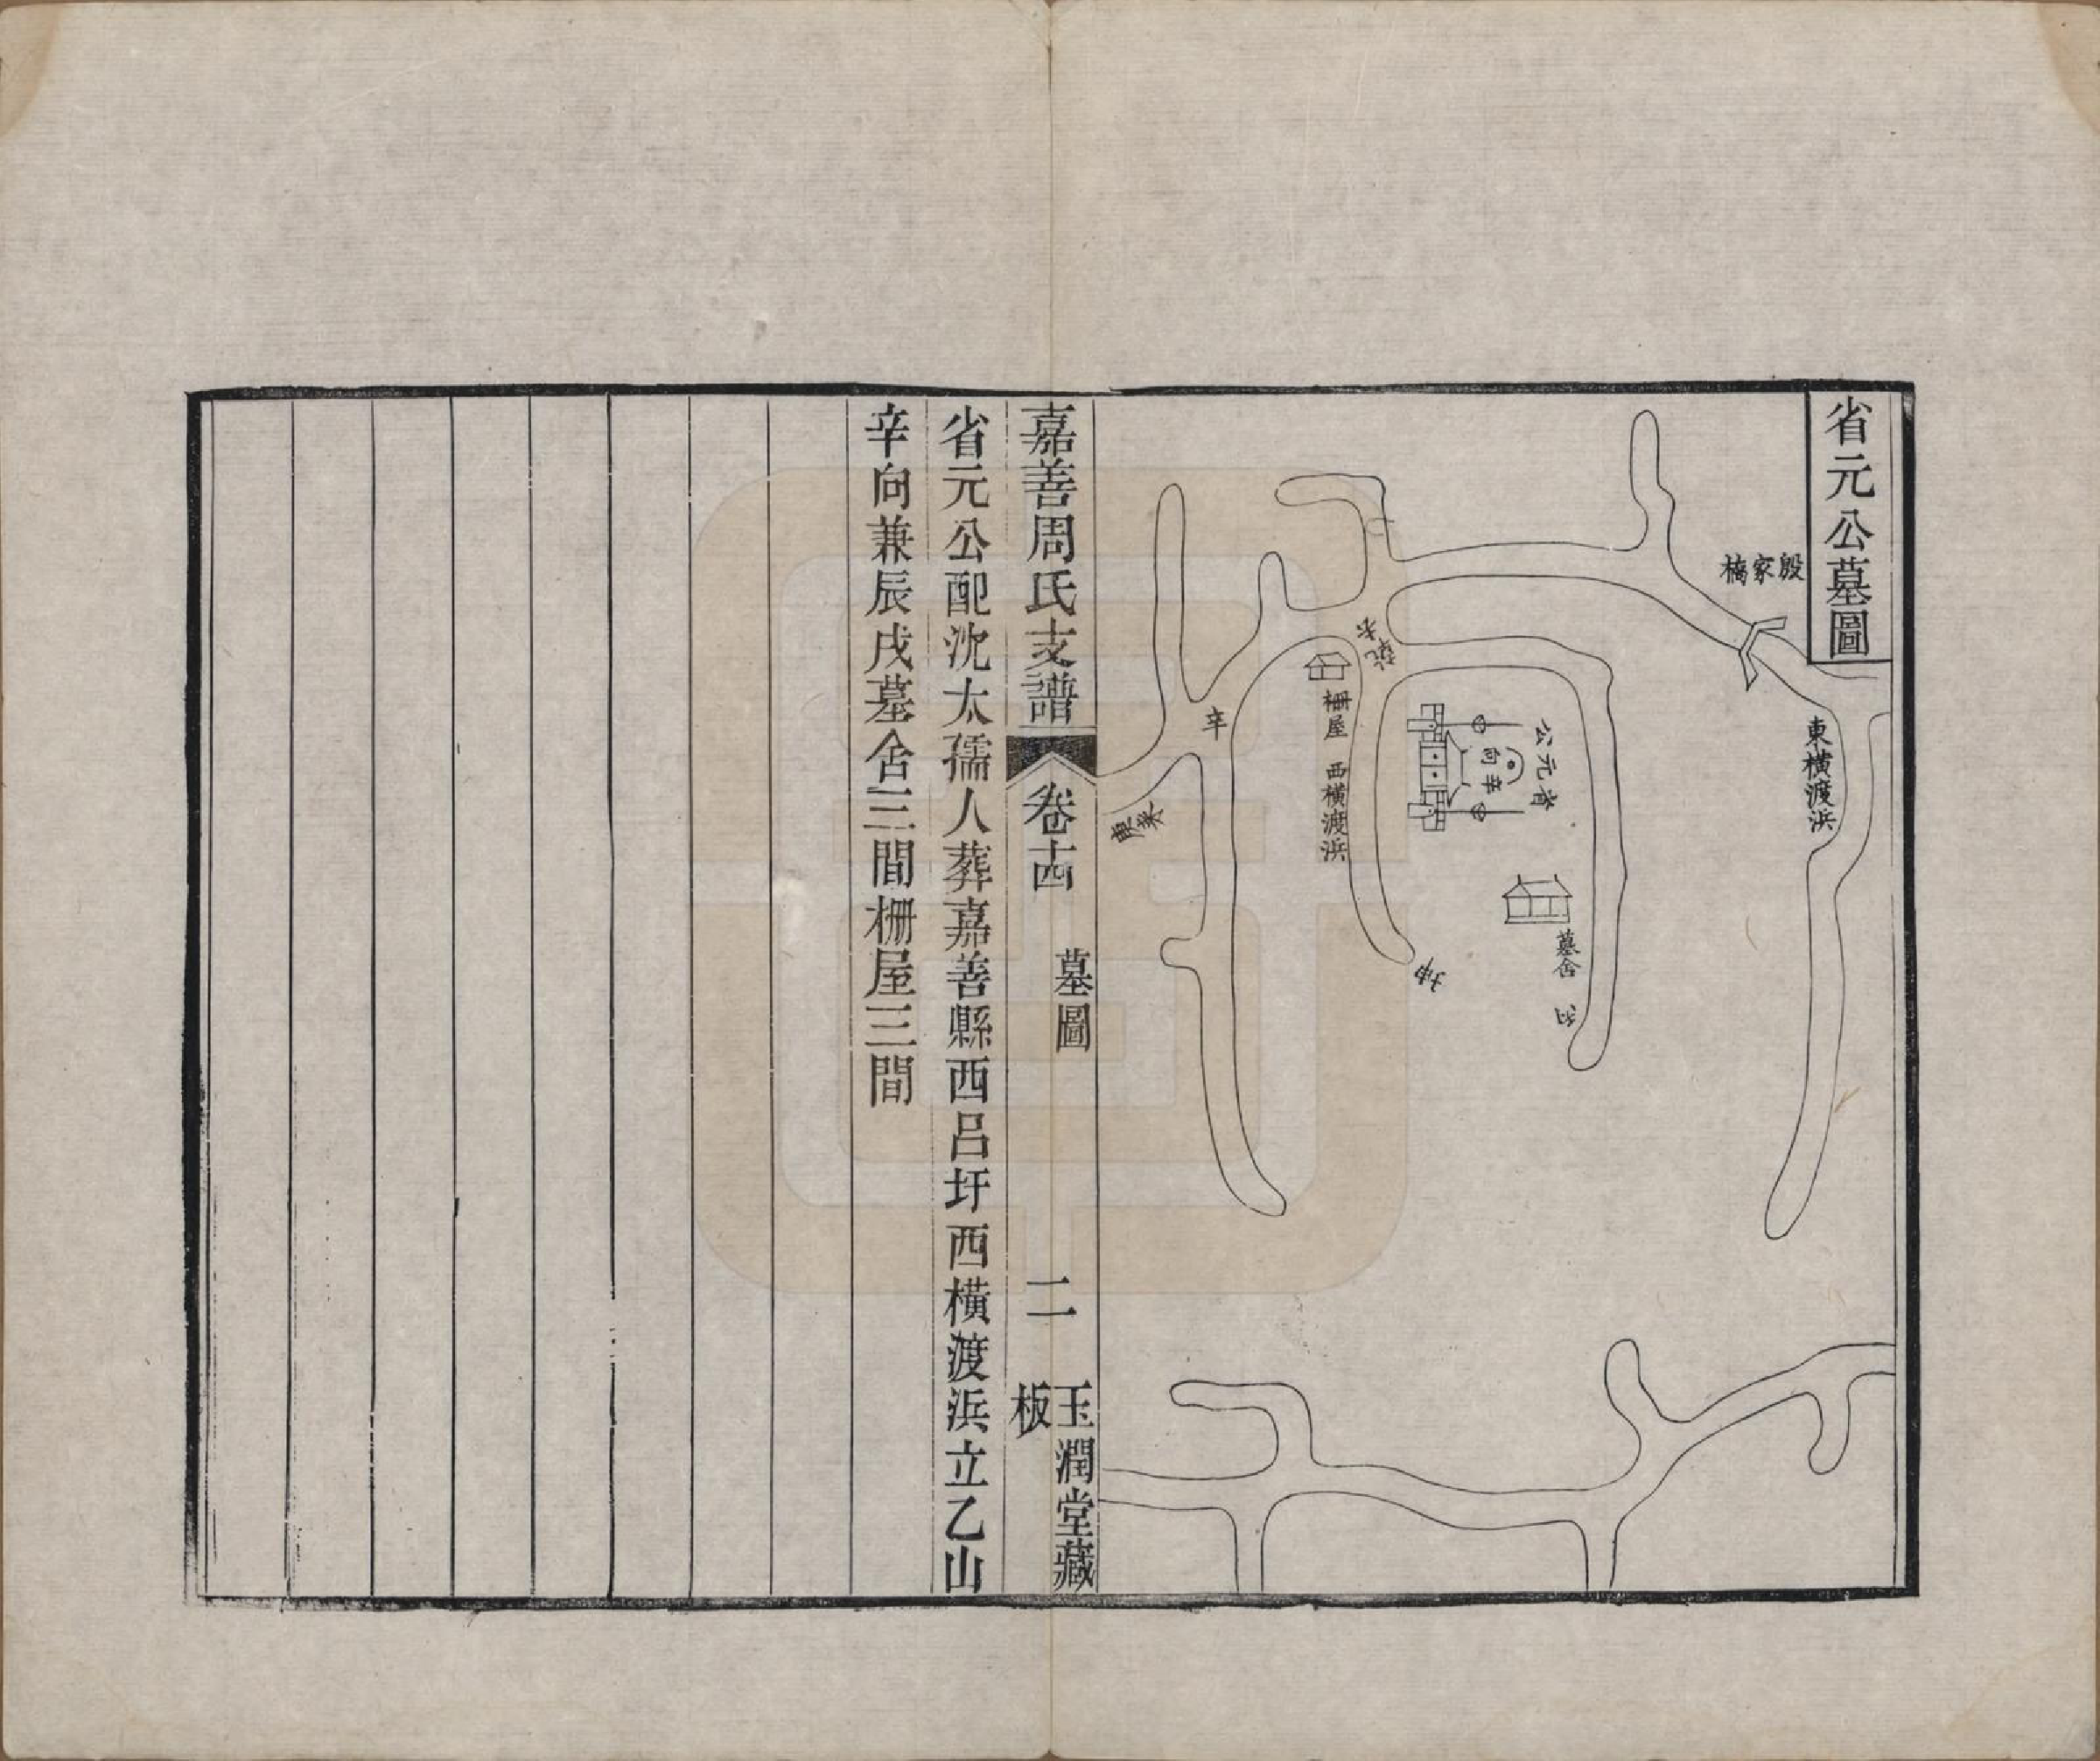 省元公墓圖
殷家橋
東橫渡浜
省元公
辛向
墓舍
坤
柵屋
西橫渡浜
辛
嘉善周氏支譜
卷十四
墓圖
二
玉潤堂藏
板
省元公配沈太孺人葬嘉善縣西呂圩西橫渡浜立乙山
辛向兼辰戌墓舍三間柵屋三間